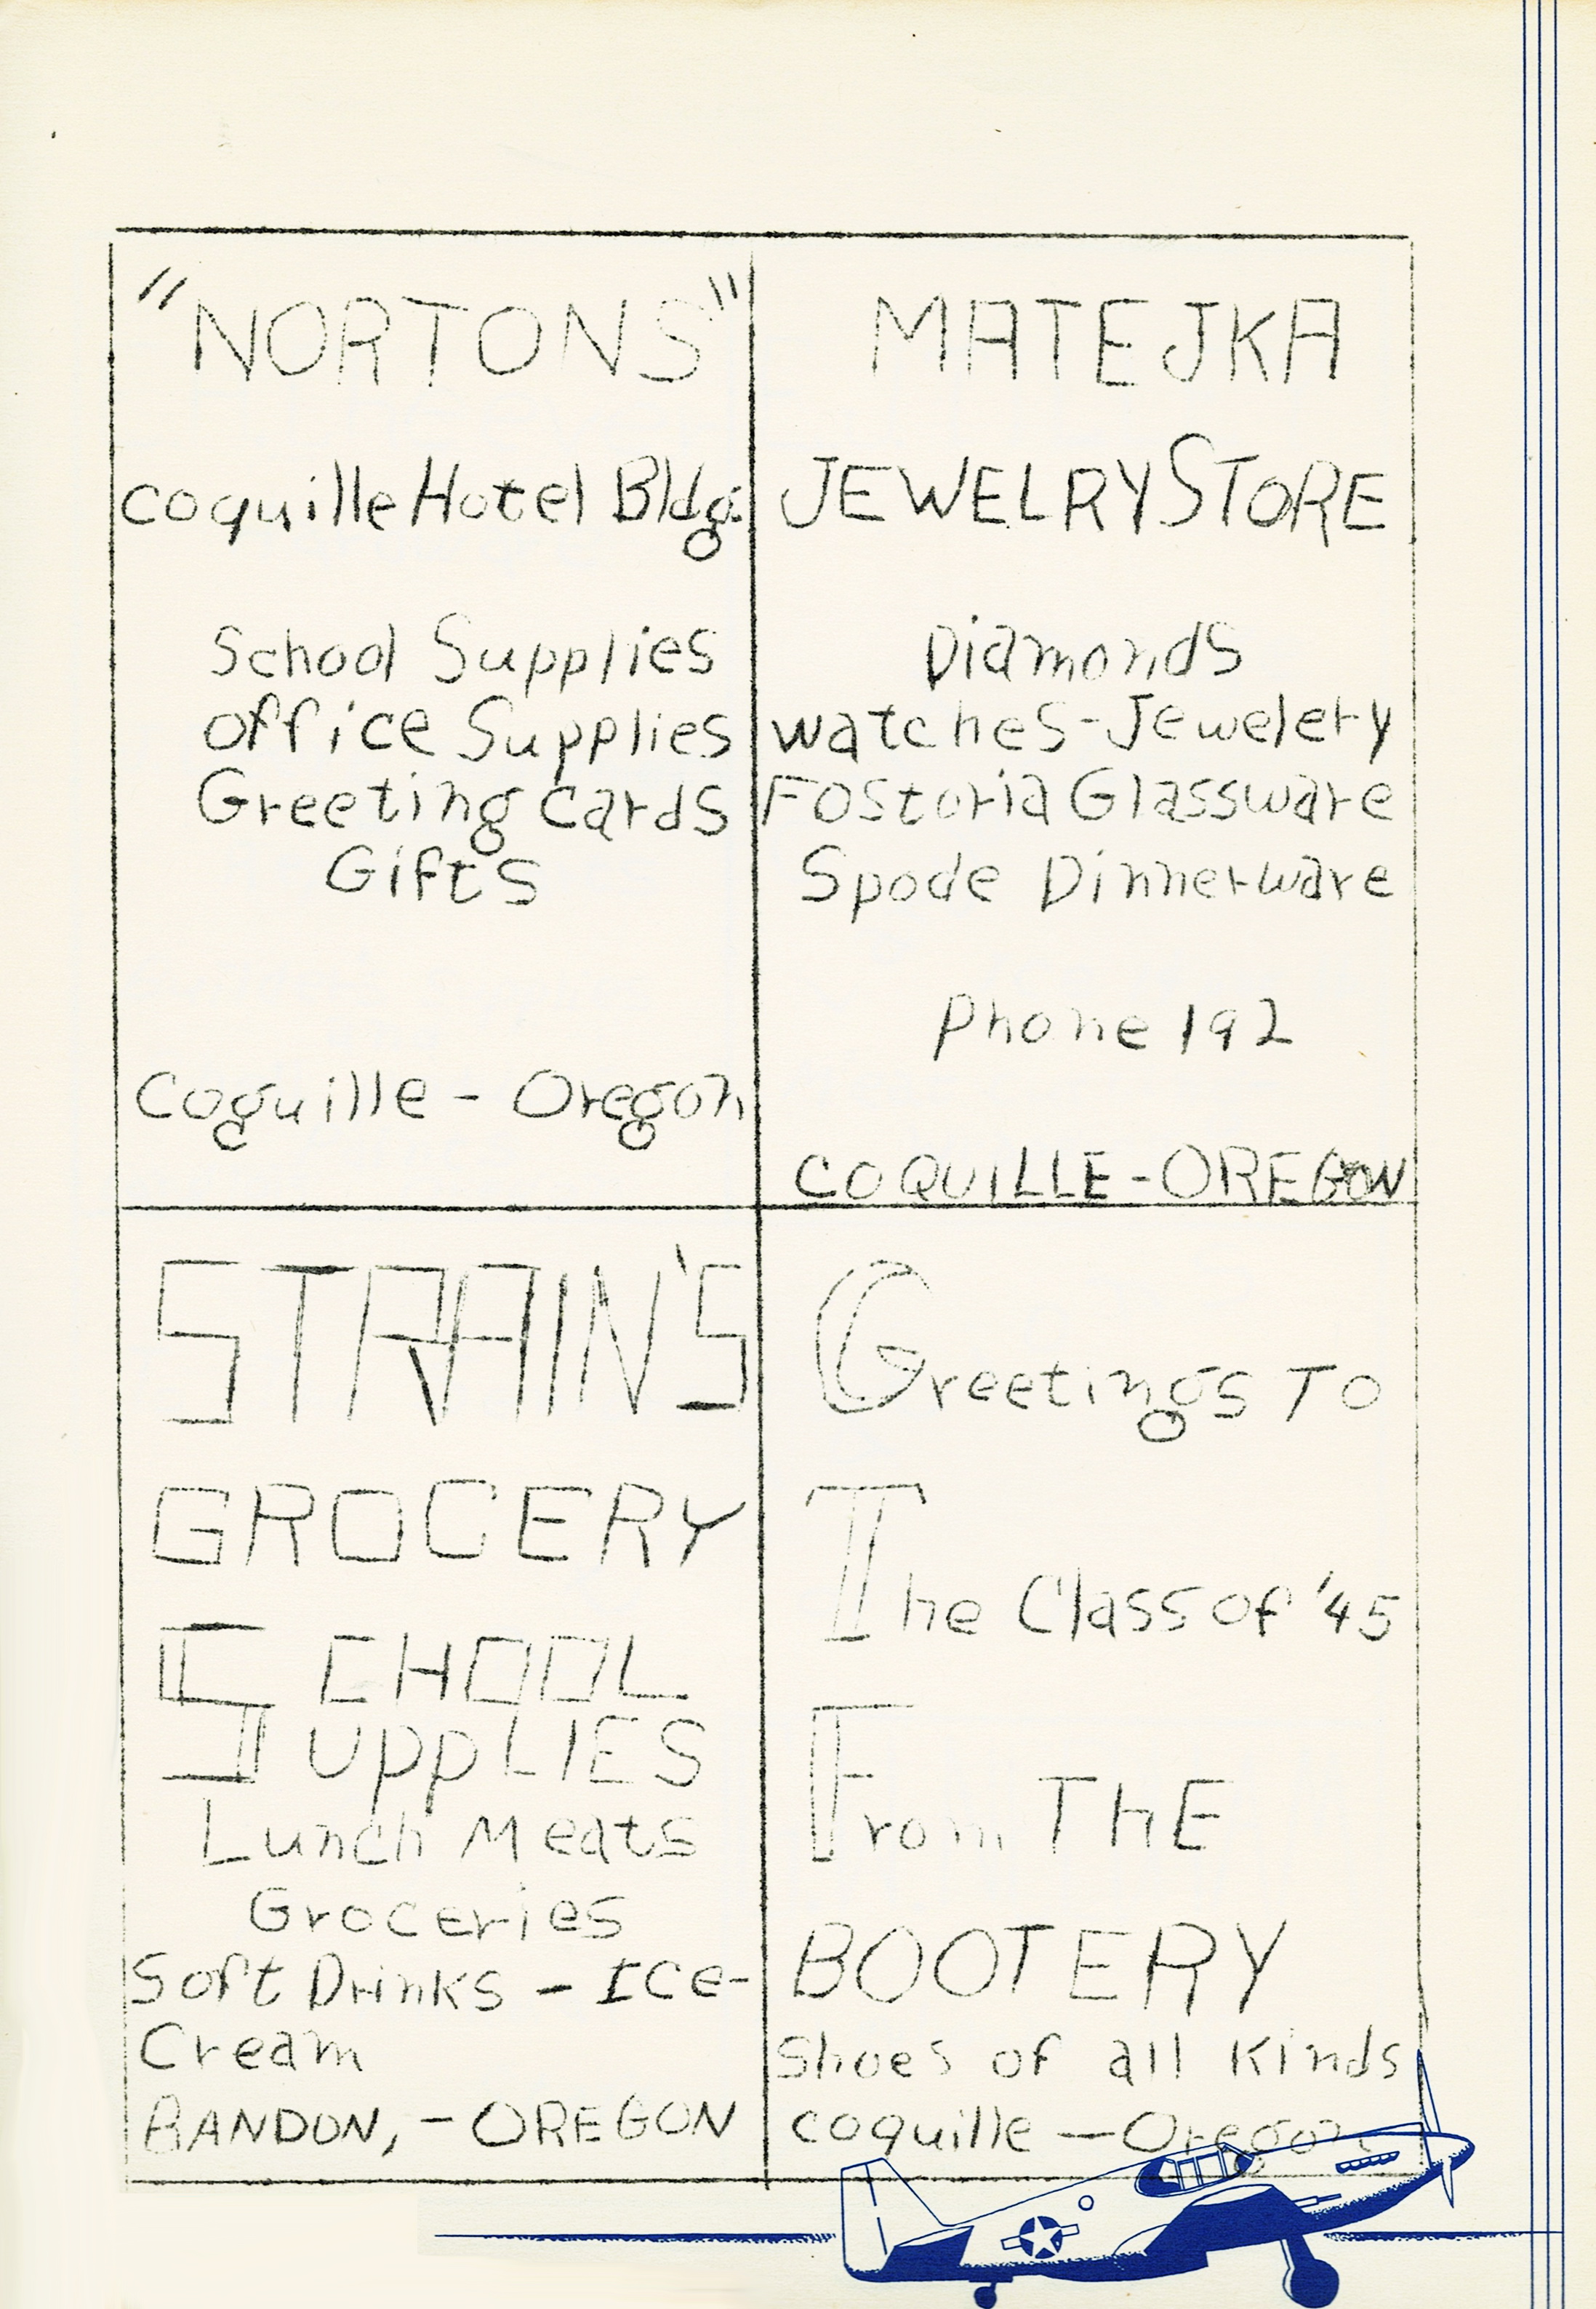 "NORTONS"
Coquille Hotel Bldg.
School Supplies
Office Supplies
Greeting Cards
Gifts
Coquille - Oregon
MATEJKA
JEWELRY STORE
Diamonds
Watches-Jewelery
Fostoria Glassware
Spode Dinnerware
Phone 192
COQUILLE-OREGON
STRAIN'S
GROCERY
SCHOOL
SUppLIES
Lunch Meats
Groceries
Soft Drinks - Ice-
Cream
BANDON, - OREGON
Greetings To
The Class of '45
From THE
BOOTERY
Shoes of all Kinds
Coquille - Oregon